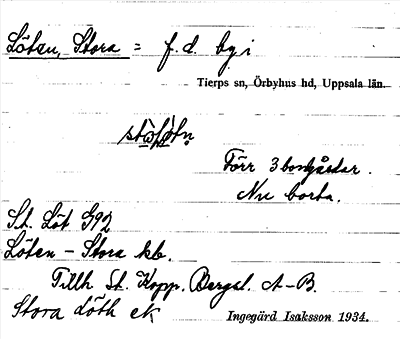 Löten, Stora = f. d. by i
Tierps sn, Örbyhus hd, Uppsala län.
Förr 3 bondgårdar.
Nu borta.
St. Löt G92
Löten – Stora kb.
Tillh. St. Kopp. Bergsl. A–B.
Stora Löth ek
Ingegärd Isaksson 1934.